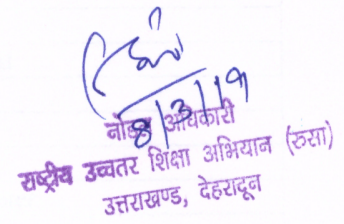 8/3/19
नोडल अधिकारी
राष्ट्रीय उच्चतर शिक्षा अभियान (रुसा)
उत्तराखण्ड, देहरादून